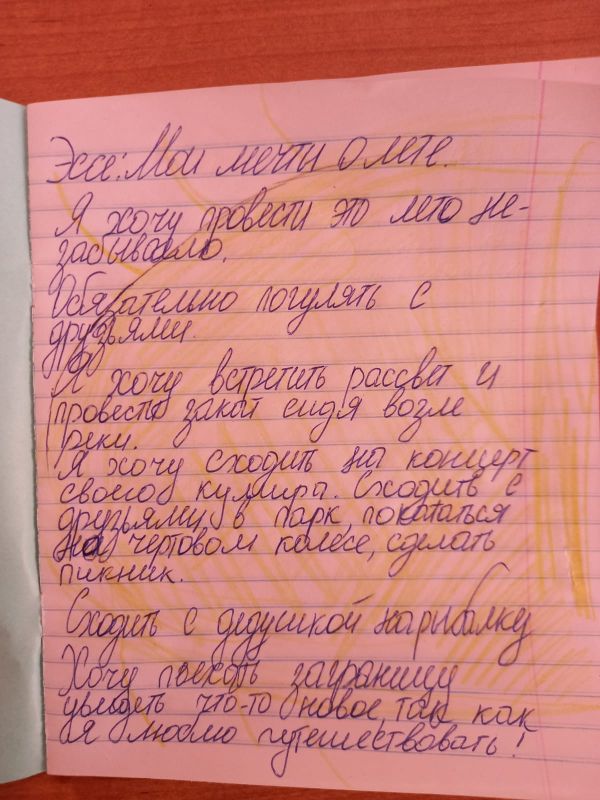 Эссе: Мои мечты о лете.
Я хочу провести это лето не-
забываемо.
Обязательно погулять с
друзьями.
Я хочу встретить рассвет и
провести закат сидя возле
реки.
Я хочу сходить на концерт
своего кумира. Сходить с
друзьями в парк, покататься
на чёртовом колесе, сделать
пикник.
Сходить с дедушкой на рыбалку
Хочу поехать заграницу
увидеть что-то новое, так как
я люблю путешествовать!